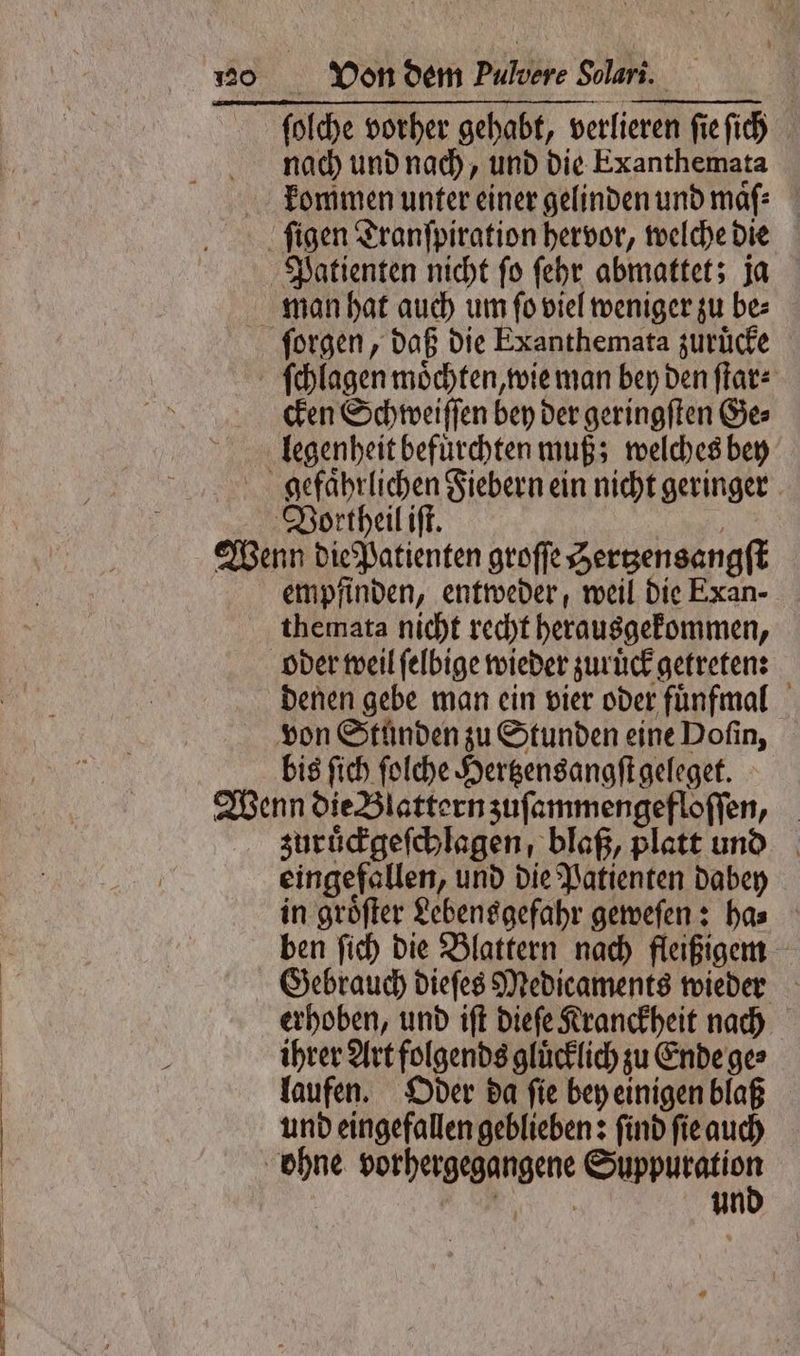 120 Von dem Pulvere Solari.
ſolche vorher gehabt, verlieren ſie ſich
nach und nach, und die Exanthemata
kommen unter einer gelinden und maͤſ⸗
ſigen Tranſpiration hervor, welche die
Patienten nicht ſo ſehr abmattet; ja
man hat auch um ſo viel weniger zu be⸗
ſorgen, daß die Exanthemata zuruͤcke
ſchlagen moͤchten, wie man bey den ſtar⸗
cken Schweiſſen bey der geringſten Ge⸗
legenheit befuͤrchten muß; welches bey
gefaͤhrlichen Fiebern ein nicht geringer
Vortheil iſt.
Wenn die Patienten groſſe Hertzensangſt
empfinden, entweder, weil die Exan-
themata nicht recht herausgekommen,
oder weil ſelbige wieder zuruͤck getreten:
denen gebe man ein vier oder fuͤnfmal
von Stunden zu Stunden eine Doſin,
bis ſich ſolche Hertzensangſt geleget.
Wenn die Blattern zuſammengefloſſen,
zuruͤckgeſchlagen, blaß, platt und
eingefallen, und die Patienten dabey
in groͤſter Lebensgefahr geweſen: ha⸗
ben ſich die Blattern nach fleißigem
Gebrauch dieſes Medicaments wieder
erhoben, und iſt dieſe Kranckheit nach
ihrer Art folgends gluͤcklich zu Ende ge⸗
laufen. Oder da ſie bey einigen blaß
und eingefallen geblieben: ſind ſie auch
ohne vorhergegangene Suppuration
und